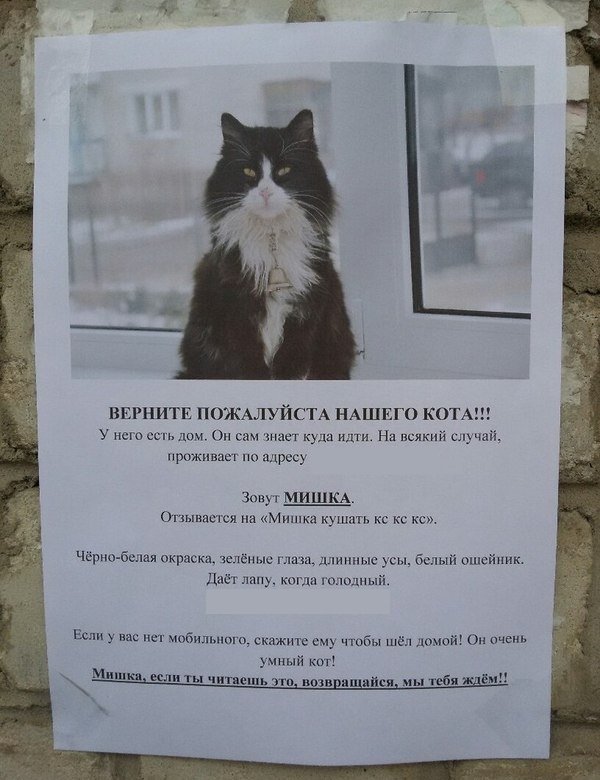 ВЕРНИТЕ ПОЖАЛУЙСТА НАШЕГО КОТА!!!
У него есть дом. Он сам знает куда идти. На всякий случай,
проживает по адресу
Зовут МИШКА.
Отзывается на «Мишка кушать кс кс кс».
Чёрно-белая окраска, зелёные глаза, длинные усы, белый ошейник.
Даёт лапу, когда голодный.
Если у вас нет мобильного, скажите ему чтобы шёл домой! Он очень
умный кот!
Мишка, если ты читаешь это, возвращайся, мы тебя ждём!!